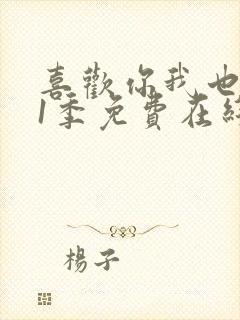 喜歡你我也
1季免費在
楊子